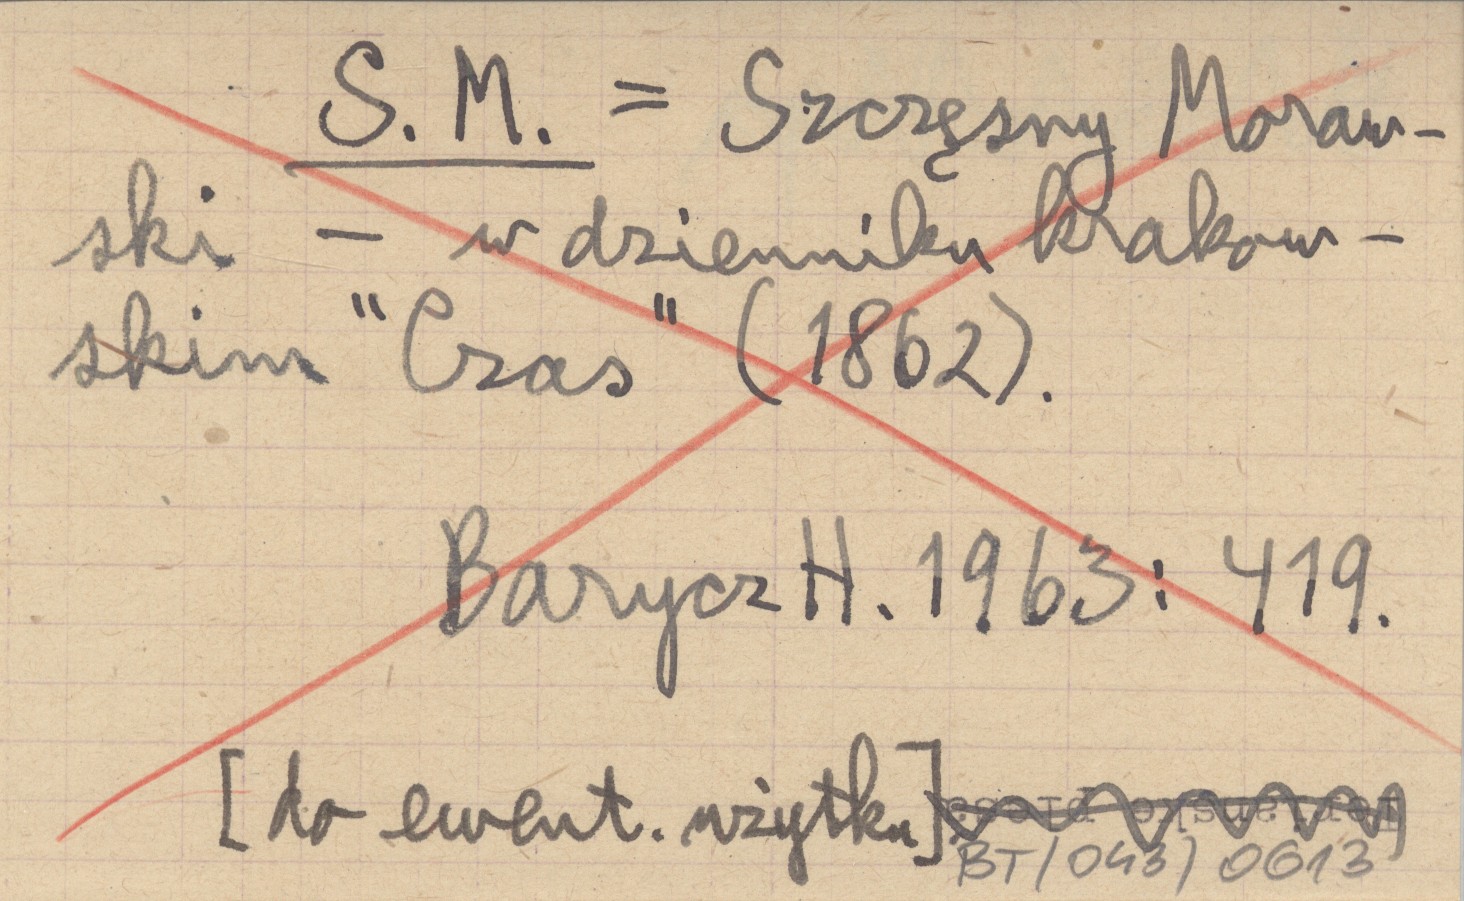 S. M. = Szczęsny Moraw-
ski – w dzienniku krakow-
skim "Czas" (1862).
Barycz H. 1963: 419.
[do ewent. użytku]
BT/043/0613